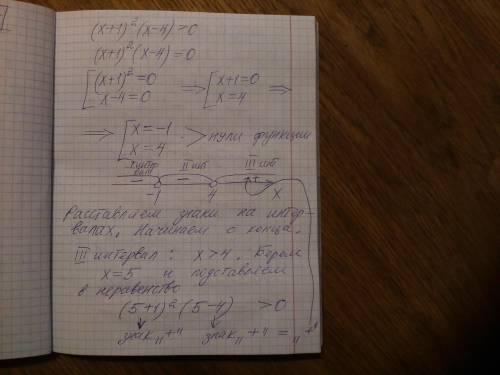 (x+1)² (x-4) > 0
(x+1)² (x-4) = 0
[ (x+1)² = 0 x-4 = 0 ⟹ [ x+1 = 0 x = 4 ⟹
⟹ [ x = -1 x = 4 > нули функции
I интер вал II инт III инт
− − +
-1 4 x
Расставляем знаки на интер-
валах, начинаем с конца.
III интервал: x > 4. Берем
x = 5 и подставляем
в неравенство
(5+1)² (5-4) > 0
знак „+" знак „+" = „+"